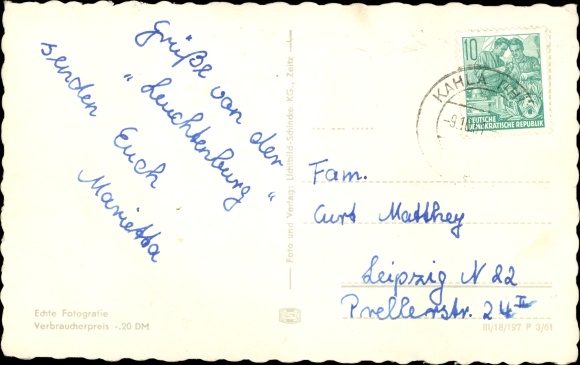 Grüße von der
"Leuchtenburg"
senden Euch
Marietta
Echte Fotografie
Verbraucherpreis -.20 DM
Foto und Verlag: Lichtbild-Schincke KG., Zeitz
10
DEUTSCHE
DEMOKRATISCHE REPUBLIK
KAHLA
-9.1
Fam.
Curt Matthey
Leipzig N 22
Prellerstr. 24 II
III/18/197 P 3/61